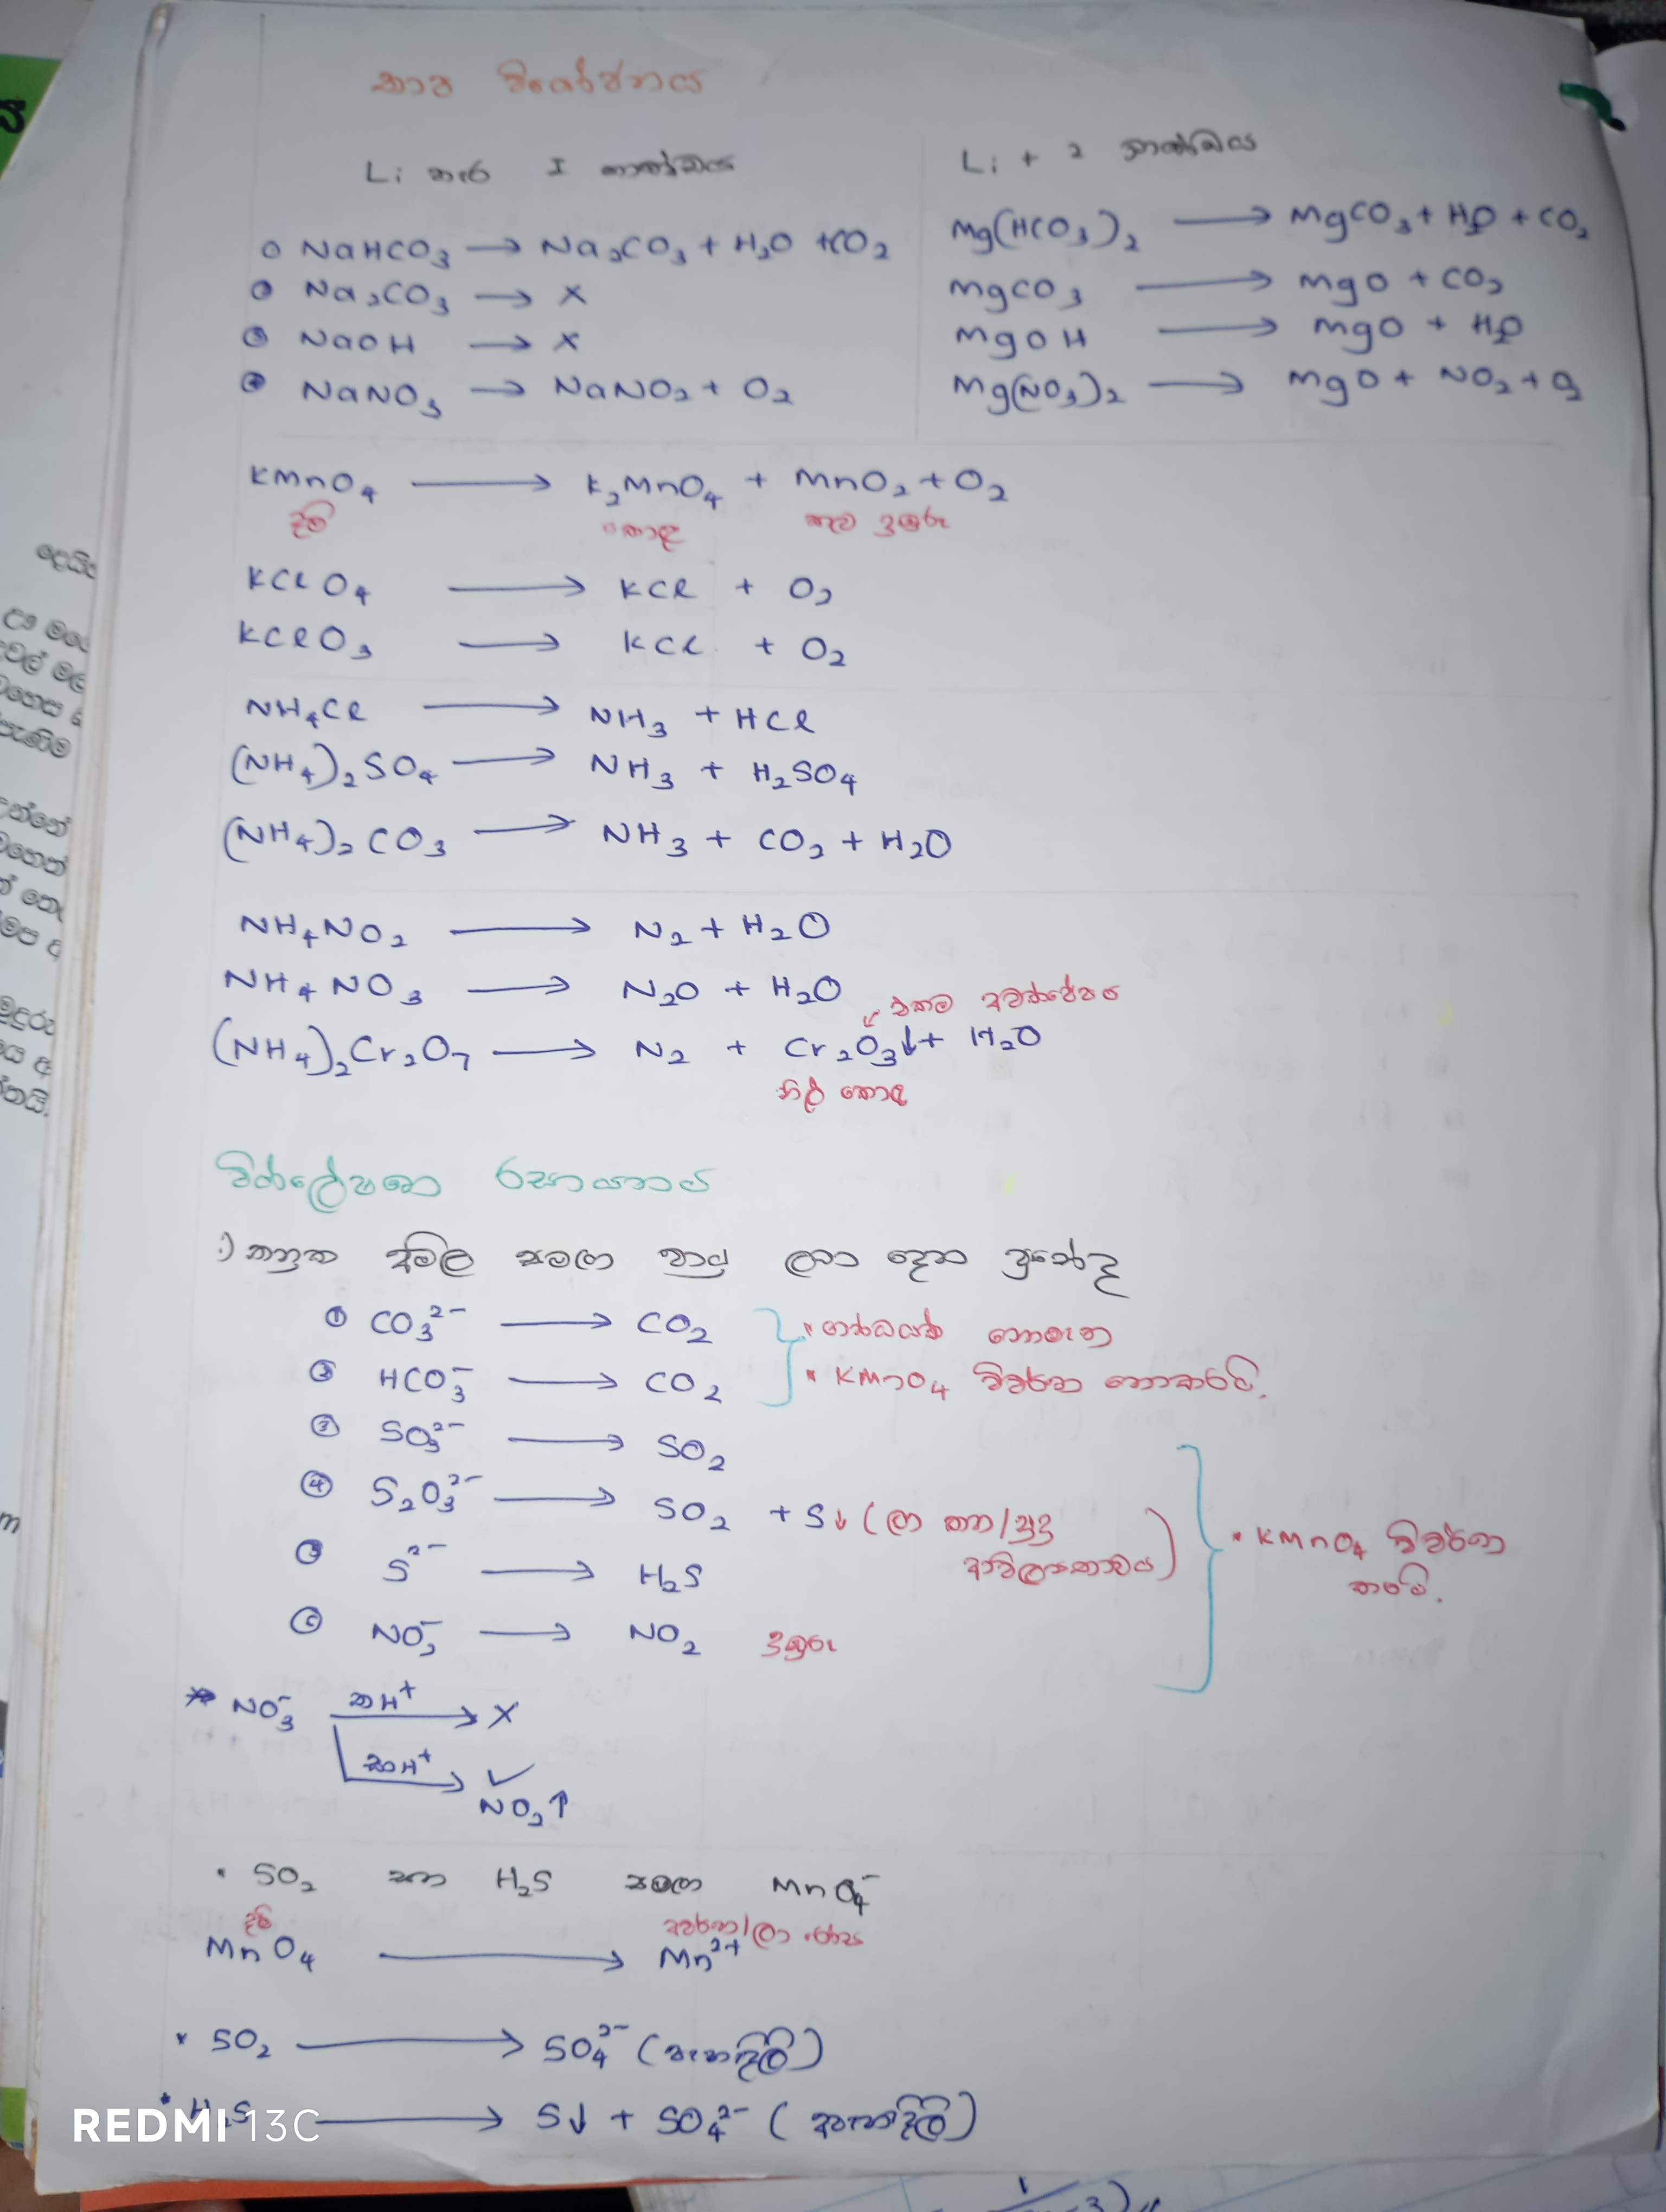 තාප වියෝජනය
Li හැර I කාණ්ඩය
① NaHCO₃ → Na₂CO₃ + H₂O + CO₂
② Na₂CO₃ → ×
③ NaOH → ×
④ NaNO₃ → NaNO₂ + O₂
Li + 2 කාණ්ඩය
Mg(HCO₃)₂ → MgCO₃ + H₂O + CO₂
MgCO₃ → MgO + CO₂
MgOH → MgO + H₂O
Mg(NO₃)₂ → MgO + NO₂ + O₂
KMnO₄ → K₂MnO₄ + MnO₂ + O₂
දම් කොළ දුඹුරු
KClO₄ → KCl + O₂
KClO₃ → KCl + O₂
NH₄Cl → NH₃ + HCl
(NH₄)₂SO₄ → NH₃ + H₂SO₄
(NH₄)₂CO₃ → NH₃ + CO₂ + H₂O
NH₄NO₂ → N₂ + H₂O
NH₄NO₃ → N₂O + H₂O
එකම අවක්ෂේපය
(NH₄)₂Cr₂O₇ → N₂ + Cr₂O₃↓ + H₂O
නිල් කොළ
විශ්ලේෂණ රසායනය
1) තනුක අම්ල සමඟ වායු ලබා දෙන ප්‍රභේද
① CO₃²⁻ → CO₂
② HCO₃⁻ → CO₂
* ගන්ධයක් නොමැත
* KMnO₄ විවර්ණ නොකරයි.
③ SO₃²⁻ → SO₂
④ S₂O₃²⁻ → SO₂ + S↓ (ලා කහ/සුදු
ආවිලතාවය)
⑤ S²⁻ → H₂S
* KMnO₄ විවර්ණ
කරයි.
⑥ → NO₂ දුඹුරු
* NO₃⁻ ත H⁺ → ×
සා H⁺ → ✓
NO₂↑
• SO₂ සහ H₂S සමඟ MnO₄⁻
දම් අවර්ණ/ලා රෝස
MnO₄ → Mn²⁺
* SO₂ → SO₄²⁻ (පැහැදිලි)
* H₂S → S↓ + SO₄²⁻ (අපැහැදිලි)
REDMI 13C